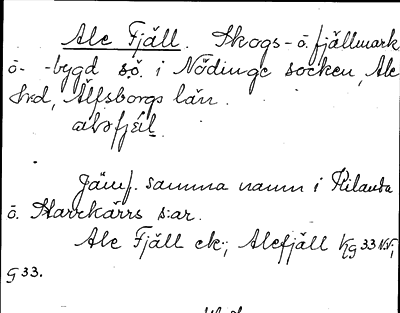 Ale Fjäll. Skogs- o. fjällmark
o. -bygd s.ö. i Nödinge socken, Ale
hrd, Älfsborgs län.
Jämf. samma namn i Kilanda
o. Starrkärrs s:ar.
Ale Fjäll ek.; Alefjäll Kg 33 NV,
G 33.